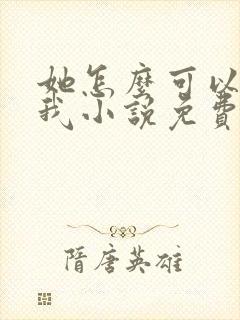 她怎麼可以
我小說免費
隋唐英雄